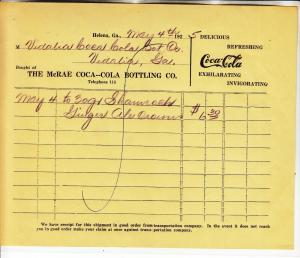 Helena, Ga., May 4th 192 5
DELICIOUS
REFRESHING
M Vidalia Coca Cola Bot Co.
Vidalia, Ga.
Coca-Cola
Bought of
THE McRAE COCA-COLA BOTTLING CO.
Telephone 115
EXHILARATING
INVIGORATING
May 4 to 30 gr Shamrock
Ginger Ale Crowns $ 6 30
We have receipt for this shipment in good order from transportation company. In the event it does not reach
you in good order make your claim at once against transportation company.